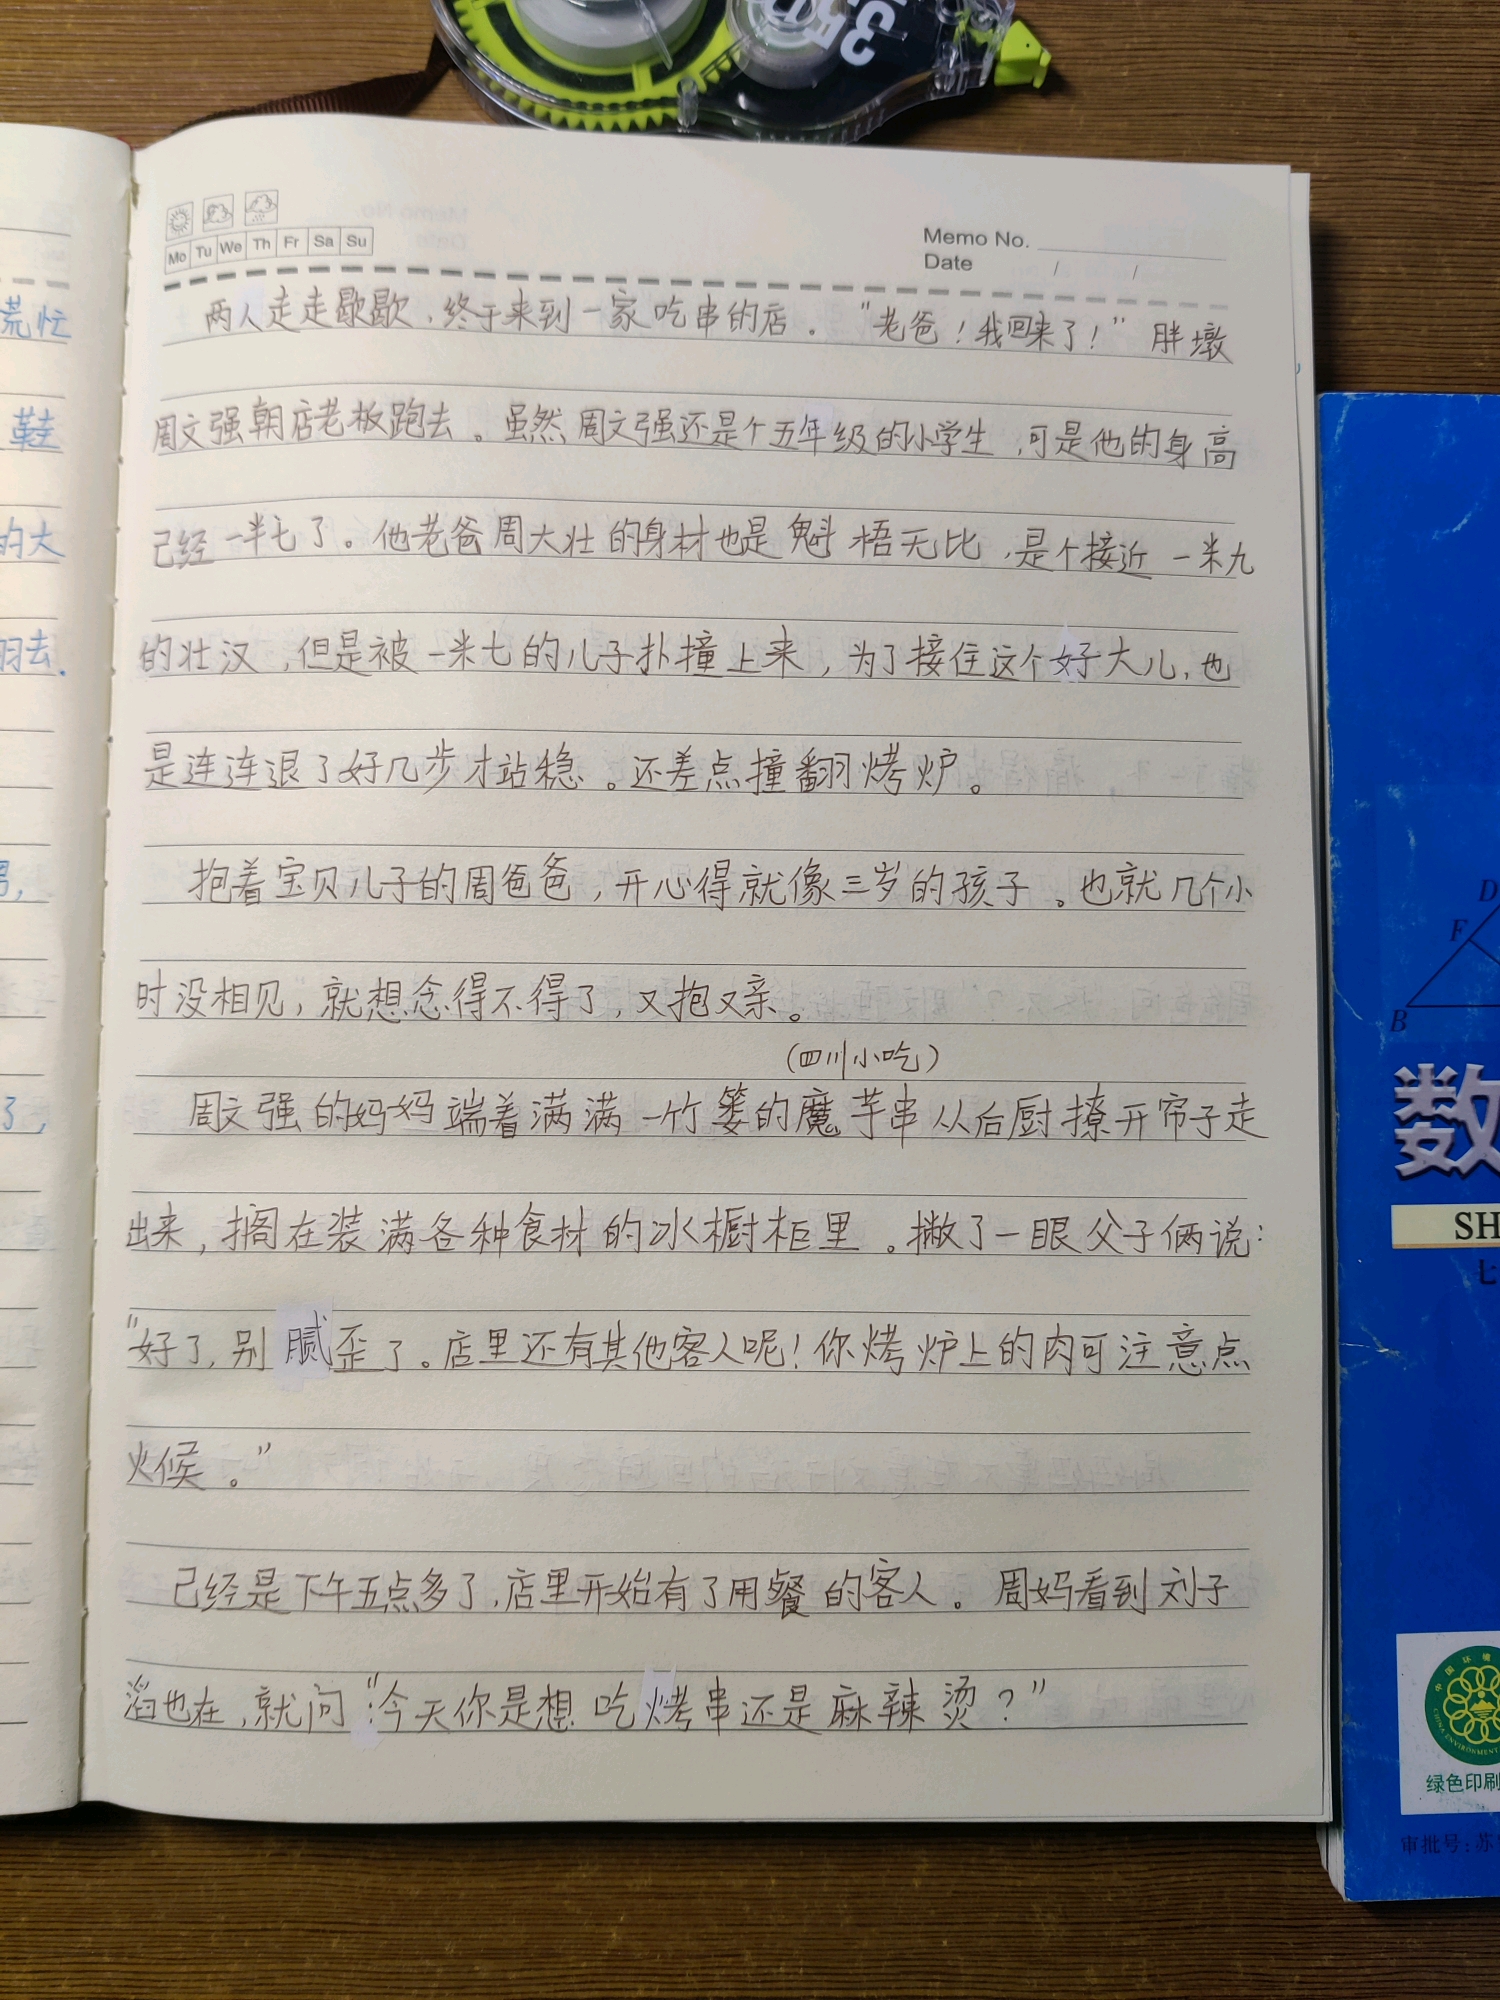 350
Mo Tu We Th Fr Sa Su
Memo No.
Date / /
两人走走歇歇，终于来到一家吃串的店。“老爸！我回来了！”胖墩
周文强朝店老板跑去。虽然周文强还是个五年级的小学生，可是他的身高
已经一米七了。他老爸周大壮的身材也是魁梧无比，是个接近一米九
的壮汉，但是被一米七的儿子扑撞上来，为了接住这个好大儿，也
是连连退了好几步才站稳。还差点撞翻烤炉。
抱着宝贝儿子的周爸爸，开心得就像三岁的孩子。也就几个小
时没相见，就想念得不得了，又抱又亲。
（四川小吃）
周文强的妈妈端着满满一竹篓的魔芋串从后厨撩开帘子走
出来，搁在装满各种食材的冰橱柜里。撇了一眼父子俩说：
“好了，别腻歪了。店里还有其他客人呢！你烤炉上的肉可注意点
火候。”
已经是下午五点多了，店里开始有了用餐的客人。周妈看到刘子
滔也在，就问“今天你是想吃烤串还是麻辣烫？”
慌忙
鞋
的大
羽去.
了，
D
F
B
数
SH
七
中国环境
CHINA ENVIRONMENT
绿色印刷
审批号：苏